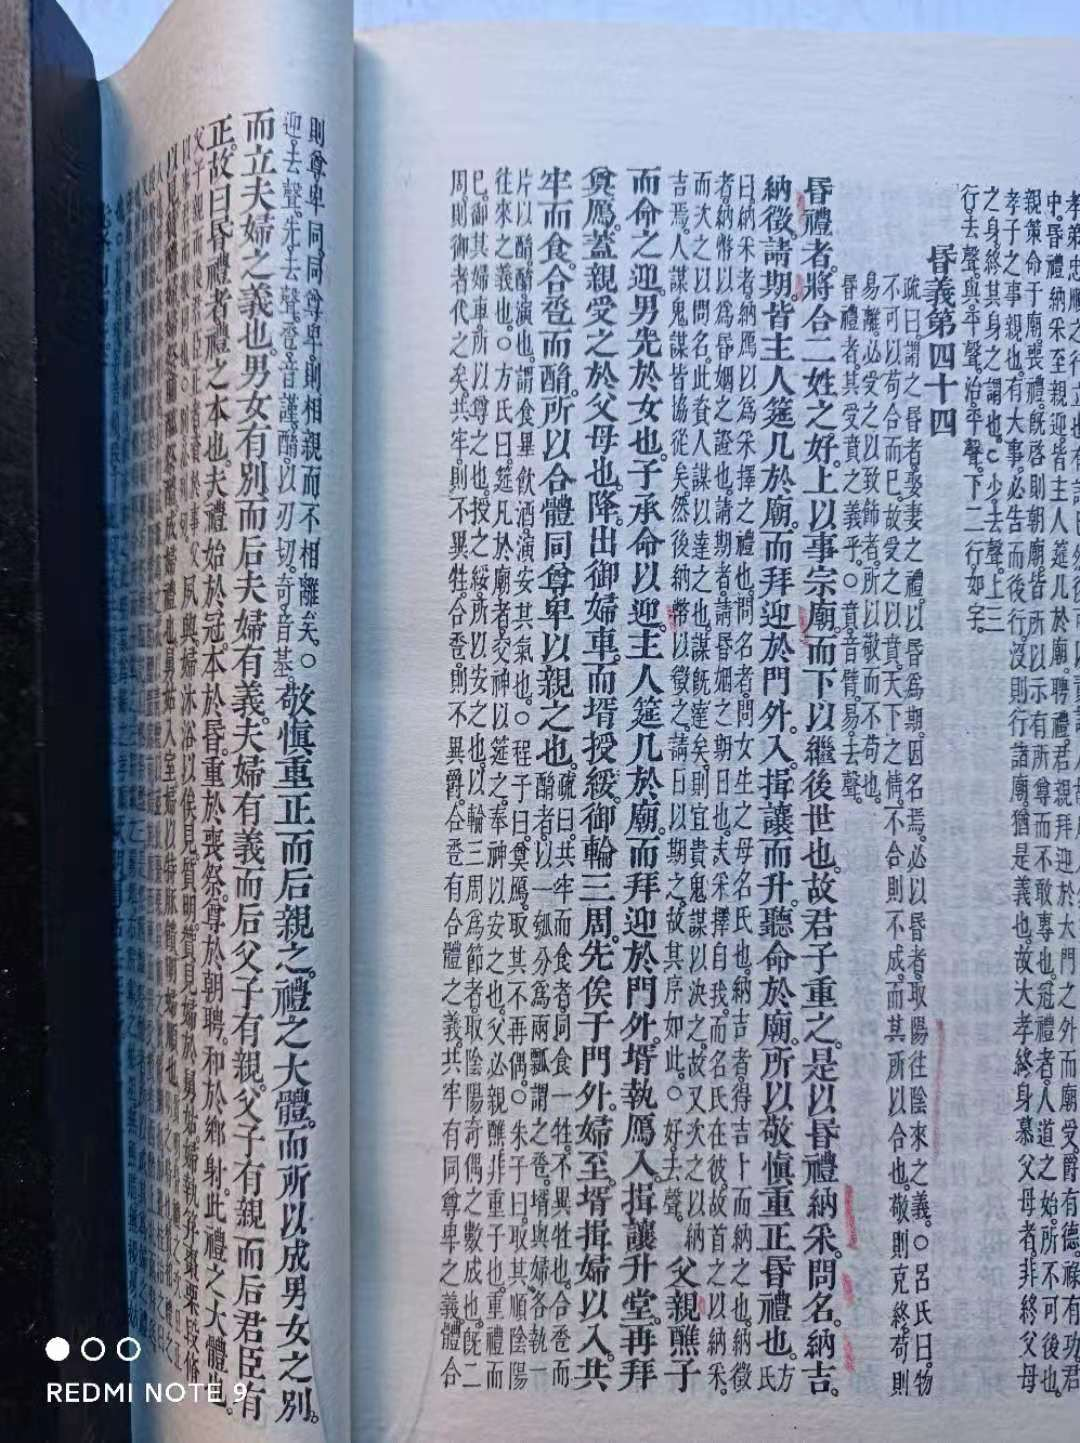 中昏禮納采至親迎皆主人筵几於廟聘禮君親拜迎於大門之外而廟受爵有德祿有功君
親策命于廟喪禮既啓則朝廟皆所以示有所尊而不敢專也冠禮者人道之始所不可後也
孝子之事親也有大事必告而後行沒則行諸廟猶是義也故大孝終身慕父母者非終父母
之身終其身之謂也○少去聲上三
行去聲與平聲治平聲下二行如字
昏義第四十四
疏曰謂之昏者娶妻之禮以昏爲期因名焉必以昏者取陽往陰來之義○呂氏曰物
不可以苟合而已故受之以賁天下之情不合則不成而其所以合也敬則克終苟則
易離必受之以致飾者所以敬而不苟也
昏禮者其受賁之義乎○賁音臂易去聲
昏禮者將合二姓之好上以事宗廟而下以繼後世也故君子重之是以昏禮納采問名納吉
納徵請期皆主人筵几於廟而拜迎於門外入揖讓而升聽命於廟所以敬愼重正昏禮也方氏
曰納采者納鴈以爲采擇之禮也問名者問女生之母名氏也納吉者得吉卜而納之也納徵
者納幣以爲昏姻之證也請期者請昏姻之期日也夫采擇自我而名氏在彼故首之以納采
而次之以問名此資人謀以達之也謀既達矣則宜貴鬼謀以決之故又次之以納
吉焉人謀鬼謀皆協從矣然後納幣以徵之請日以期之故其序如此○好去聲 父親醮子
而命之迎男先於女也子承命以迎主人筵几於廟而拜迎於門外壻執鴈入揖讓升堂再拜
奠鴈蓋親受之於父母也降出御婦車而壻授綏御輪三周先俟于門外婦至壻揖婦以入共
牢而食合巹而酳所以合體同尊卑以親之也疏曰共牢而食者同食一牲不異牲也合巹而
酳者以一瓠分爲兩瓢謂之巹壻與婦各執一
片以酳酳演也謂食畢飲酒演安其氣也○程子曰奠鴈取其不再偶○朱子曰取其順陰陽
往來之義也○方氏曰筵几於廟者交神以筵之奉神以安之也父必親醮非重子也重禮而
已御其婦車所以尊之也授之綏所以安之也以輪三周爲節者取陰陽奇偶之數成也既二
周則御者代之矣共牢則不異牲合巹則不異爵合巹有合體之義共牢有同尊卑之義體合
則尊卑同同尊卑則相親而不相離矣○
迎去聲先去聲巹音謹酳以刃切奇音基敬愼重正而后親之禮之大體而所以成男女之別
而立夫婦之義也男女有別而后夫婦有義夫婦有義而后父子有親父子有親而后君臣有
正故曰昏禮者禮之本也夫禮始於冠本於昏重於喪祭尊於朝聘和於鄉射此禮之大體也
夙興婦沐浴以俟見質明贊見婦於舅姑婦執笲棗栗段脩